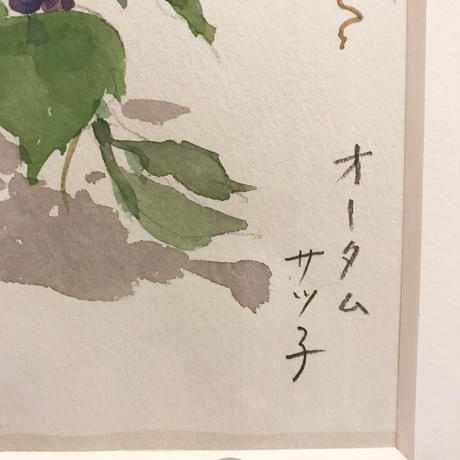 オータム
サツ子